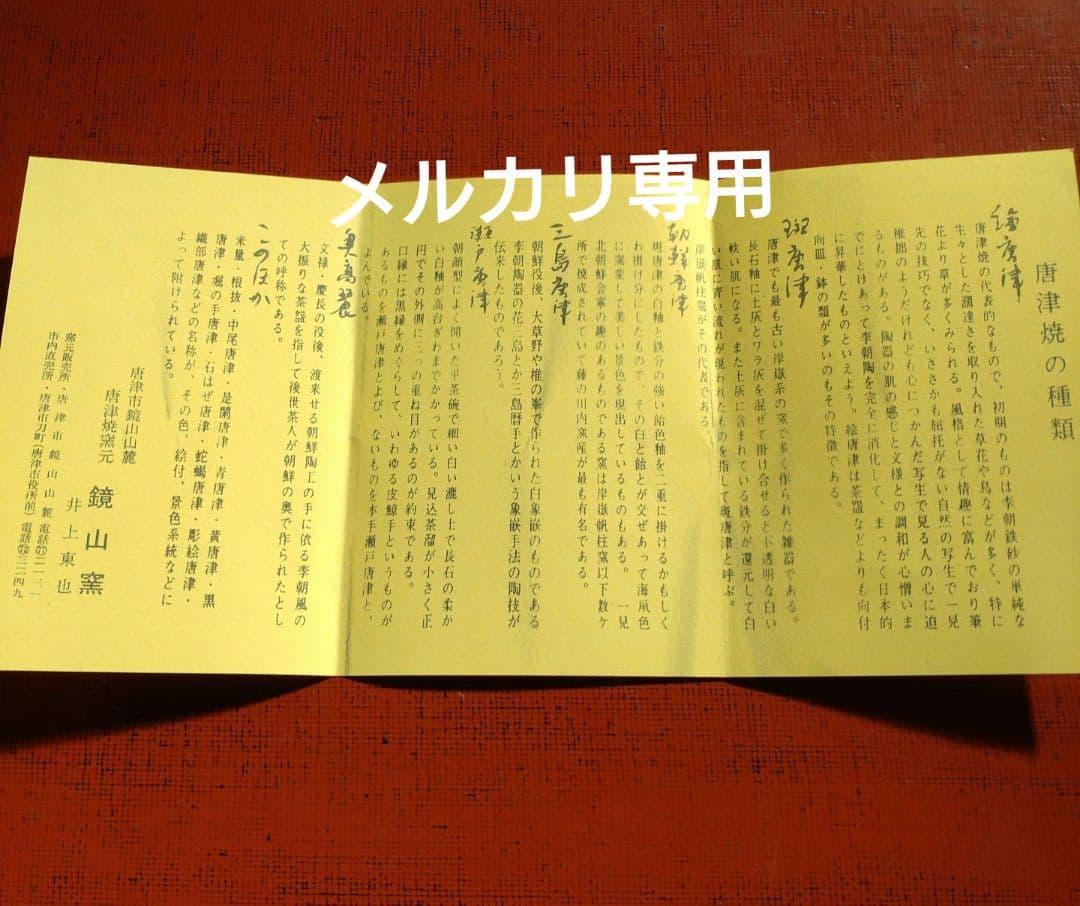 メルカリ専用
唐津焼の種類
絵唐津
唐津焼の代表的なもので、初期のものは李朝鉄砂の単純な
生々とした潤達さを取り入れた草花や鳥などが多く、特に
花より草が多くみられる。風格として情趣に富んでおり筆
先の技巧でなく、いささかも屈托がない自然の写生で一見
稚拙のようだけれども心につかんだ写生で見る人の心に迫
るものがある。陶器の肌の感じと文様との調和が心憎いま
でにとけあって李朝陶を完全に消化して、まったく日本的
に昇華したものといえよう。絵唐津は茶盌などよりも向付
向皿・鉢の類が多いのもその特徴である。
斑唐津
唐津でも最も古い岸嶽系の窯で多く作られた雑器である。
長石釉に土灰とワラ灰を混ぜて掛け合せると不透明な白い
軟い肌になる。また土灰に含まれている鉄分が還元して白
い肌に青い流れが現われたものを指して斑唐津と呼ぶ。
岸嶽帆柱窯がその代表である。
朝鮮唐津
斑唐津の白釉と鉄分の強い飴色釉を二重に掛けるかもしく
わ掛け分にしたもので、その白と飴とが交ぜあって海鼠色
に窯変して美しい景色を現出しているものもある。一見
北朝鮮会寧の趣のあるものである窯は岸嶽帆柱窯以下数ケ
所で焼成されていて藤の川内窯産が最も有名である。
三島唐津
朝鮮役後、大草野や椎の峯で作られた白象嵌のものである
李朝陶器の花三島とか三島暦手とかいう象嵌手法の陶技が
伝来したものであろう。
瀬戸唐津
朝顔型によく開いた平茶碗で細い白い漉し土で長石の柔か
い白釉が高台ぎわまでかかっている。見込茶溜が小さく正
円でその外側に三つの重ね目があるのが約束である。
口縁には黒縁をめぐらして、いわゆる皮鯨手というものが
あるものを瀬戸唐津とよび、ないものを本手瀬戸唐津と、
よんでいる。
奥高麗
文禄・慶長の役後、渡来せる朝鮮陶工の手に依る李朝風の
大振りな茶盌を指して後世茶人が朝鮮の奥で作られたとし
ての呼称である。
このほか
米量・根抜・中尾唐津・是閑唐津・青唐津・黄唐津・黒
唐津・堀の手唐津・石はぜ唐津・蛇蝎唐津・彫絵唐津・
織部唐津などの名称が、その色、絵付、景色系統などに
よって附けられている。
唐津市鏡山山麓
唐津焼窯元 鏡山窯
井上東也
窯元販売所・唐津市鏡山山麓 電話
市内直売所・唐津市刀町(唐津市役所前) 電話㉒三二四九